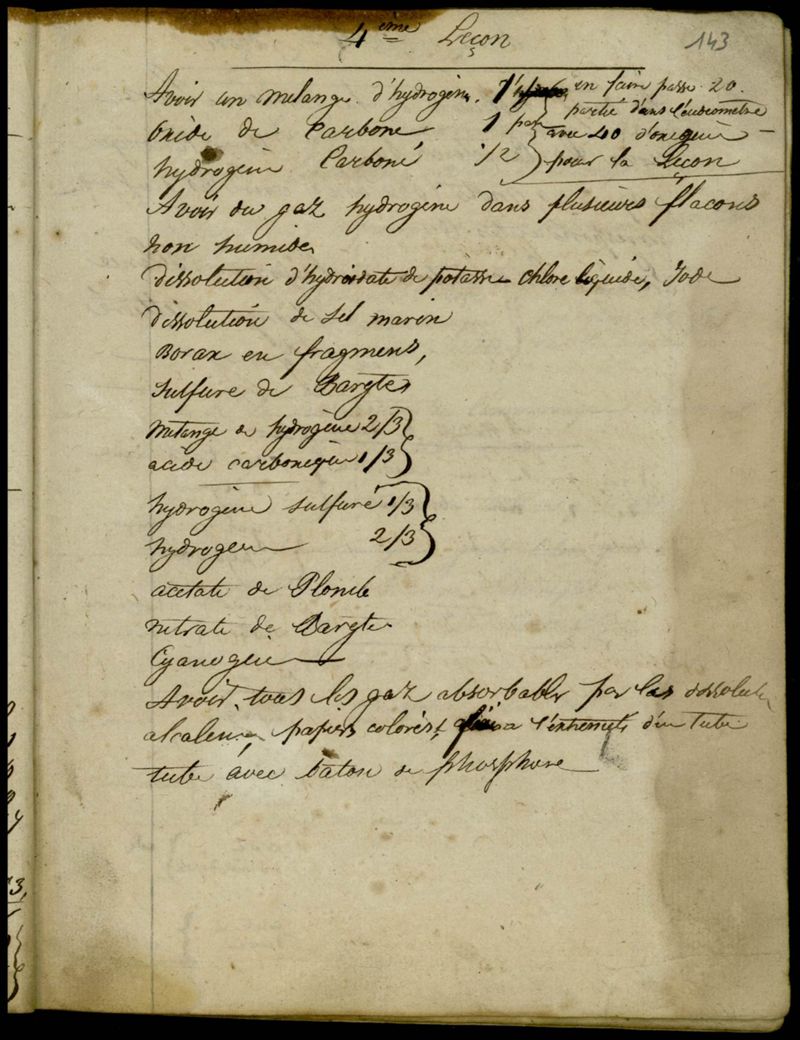 143
4ème Leçon
Avoir un mélange d'hydrogène. 1
oxide de Carbone 1 par
hydrogène Carboné 1/2
en faire passe 20.
partié dans l'eudiometre
avec 40 d'oxigène
pour la Leçon
Avoir du gaz hydrogène dans plusieurs flacons
non humide
dissolution d'hydriodate de potasse chlore liquide, Iode
dissolution de sel marin
Borax en fragmens,
Sulfure de Baryte
melange de hydrogène 2/3
acide carbonique 1/3
hydrogène sulfuré 1/3
hydrogene 2/3
acetate de Plomb
nitrate de Baryte
Cyanogene
Avoir tous les gaz absorbable par las dissolut
alcaleine papiers colorés, a l'extremité d'un tube
tube avec baton de phosphore